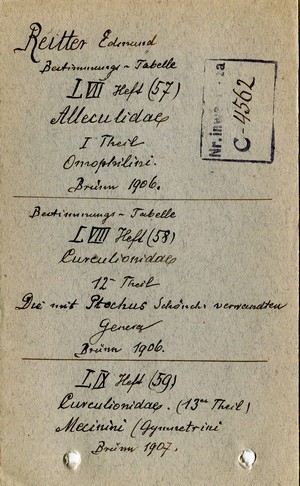 Reitter Edmund
Bestimmungs-Tabelle
LVII Heft (57)
Alleculidae
I Theil
Omophilini.
Brünn 1906.
Nr. inw
C-4562
Bestimmungs-Tabelle
LVIII Heft (58)
Curculionidae
12- Theil
Die mit Ptochus Schönh. verwandten
Genera
Brünn 1906.
LIX Heft (59)
Curculionidae. (13ter Theil)
Mecinini (Gymnetrini
Brünn 1907.